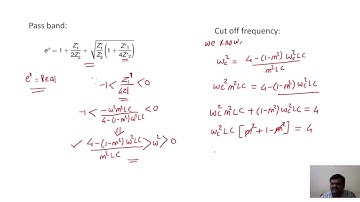 Pass band:
e^γ = 1 + Z'₁/2Z'₂ + √(Z'₁/Z'₂ (1 + Z'₁/4Z'₂))
e^γ = Real
-1 < Z₁'/4Z₂' < 0
-1 < -ω²m²LC/4-(1-m²)ω²LC < 0
⇓
✓ 4-(1-m²)ω²LC/m²LC > ω² > 0
Cut off frequency:
We know,
ω_c² = 4-(1-m²)ω_c²LC/m²LC
ω_c²m²LC = 4-(1-m²)ω_c²LC
ω_c²m²LC + (1-m²)ω_c²LC = 4
ω_c²LC [m² + 1 - m²] = 4